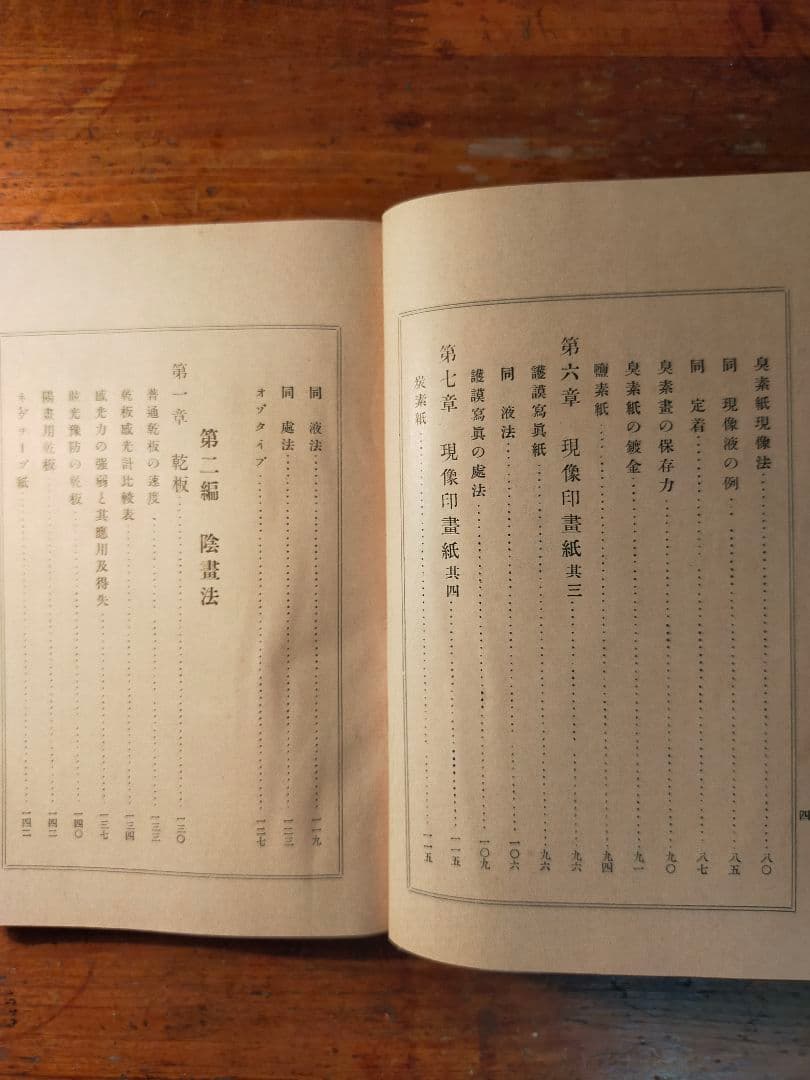 臭素紙現像法……八〇
同 現像液の例……八五
同 定着……八七
臭素畫の保存力……九〇
臭素紙の鍍金……九一
鹽素紙……九四
第六章 現像印畫紙其三……九六
護謨寫眞紙……九六
同 液法……一〇六
護謨寫眞の處法……一〇九
第七章 現像印畫紙其四……一一五
炭素紙……一一五
四
同 液法……一一九
同 處法……一二三
オゾタイプ……一二七
第二編 陰畫法
第一章 乾板……一三〇
普通乾板の速度……一三三
乾板感光計比較表……一三四
感光力の强弱と其應用及得失……一三七
眩光豫防の乾板……一四〇
陽畫用乾板……一四二
ネガチーブ紙……一四二